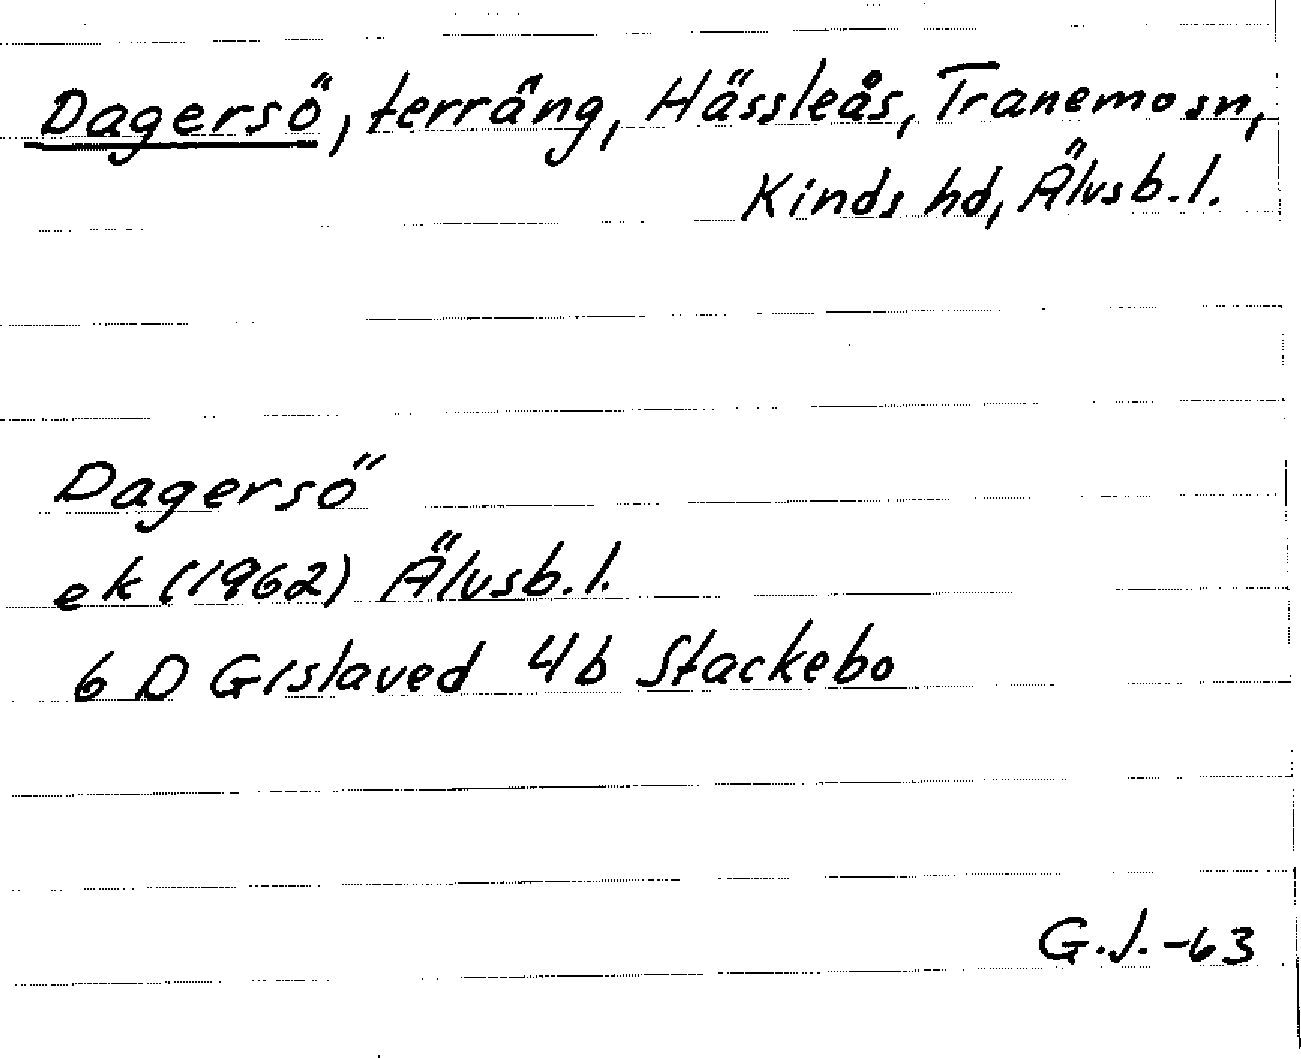 Dagersö, terräng, Hässleås, Tranemo sn,
Kinds hd, Älvsb.l.
Dagersö
ek (1962) Älvsb.l.
6 D Gislaved 4b Stackebo
G.J.-63